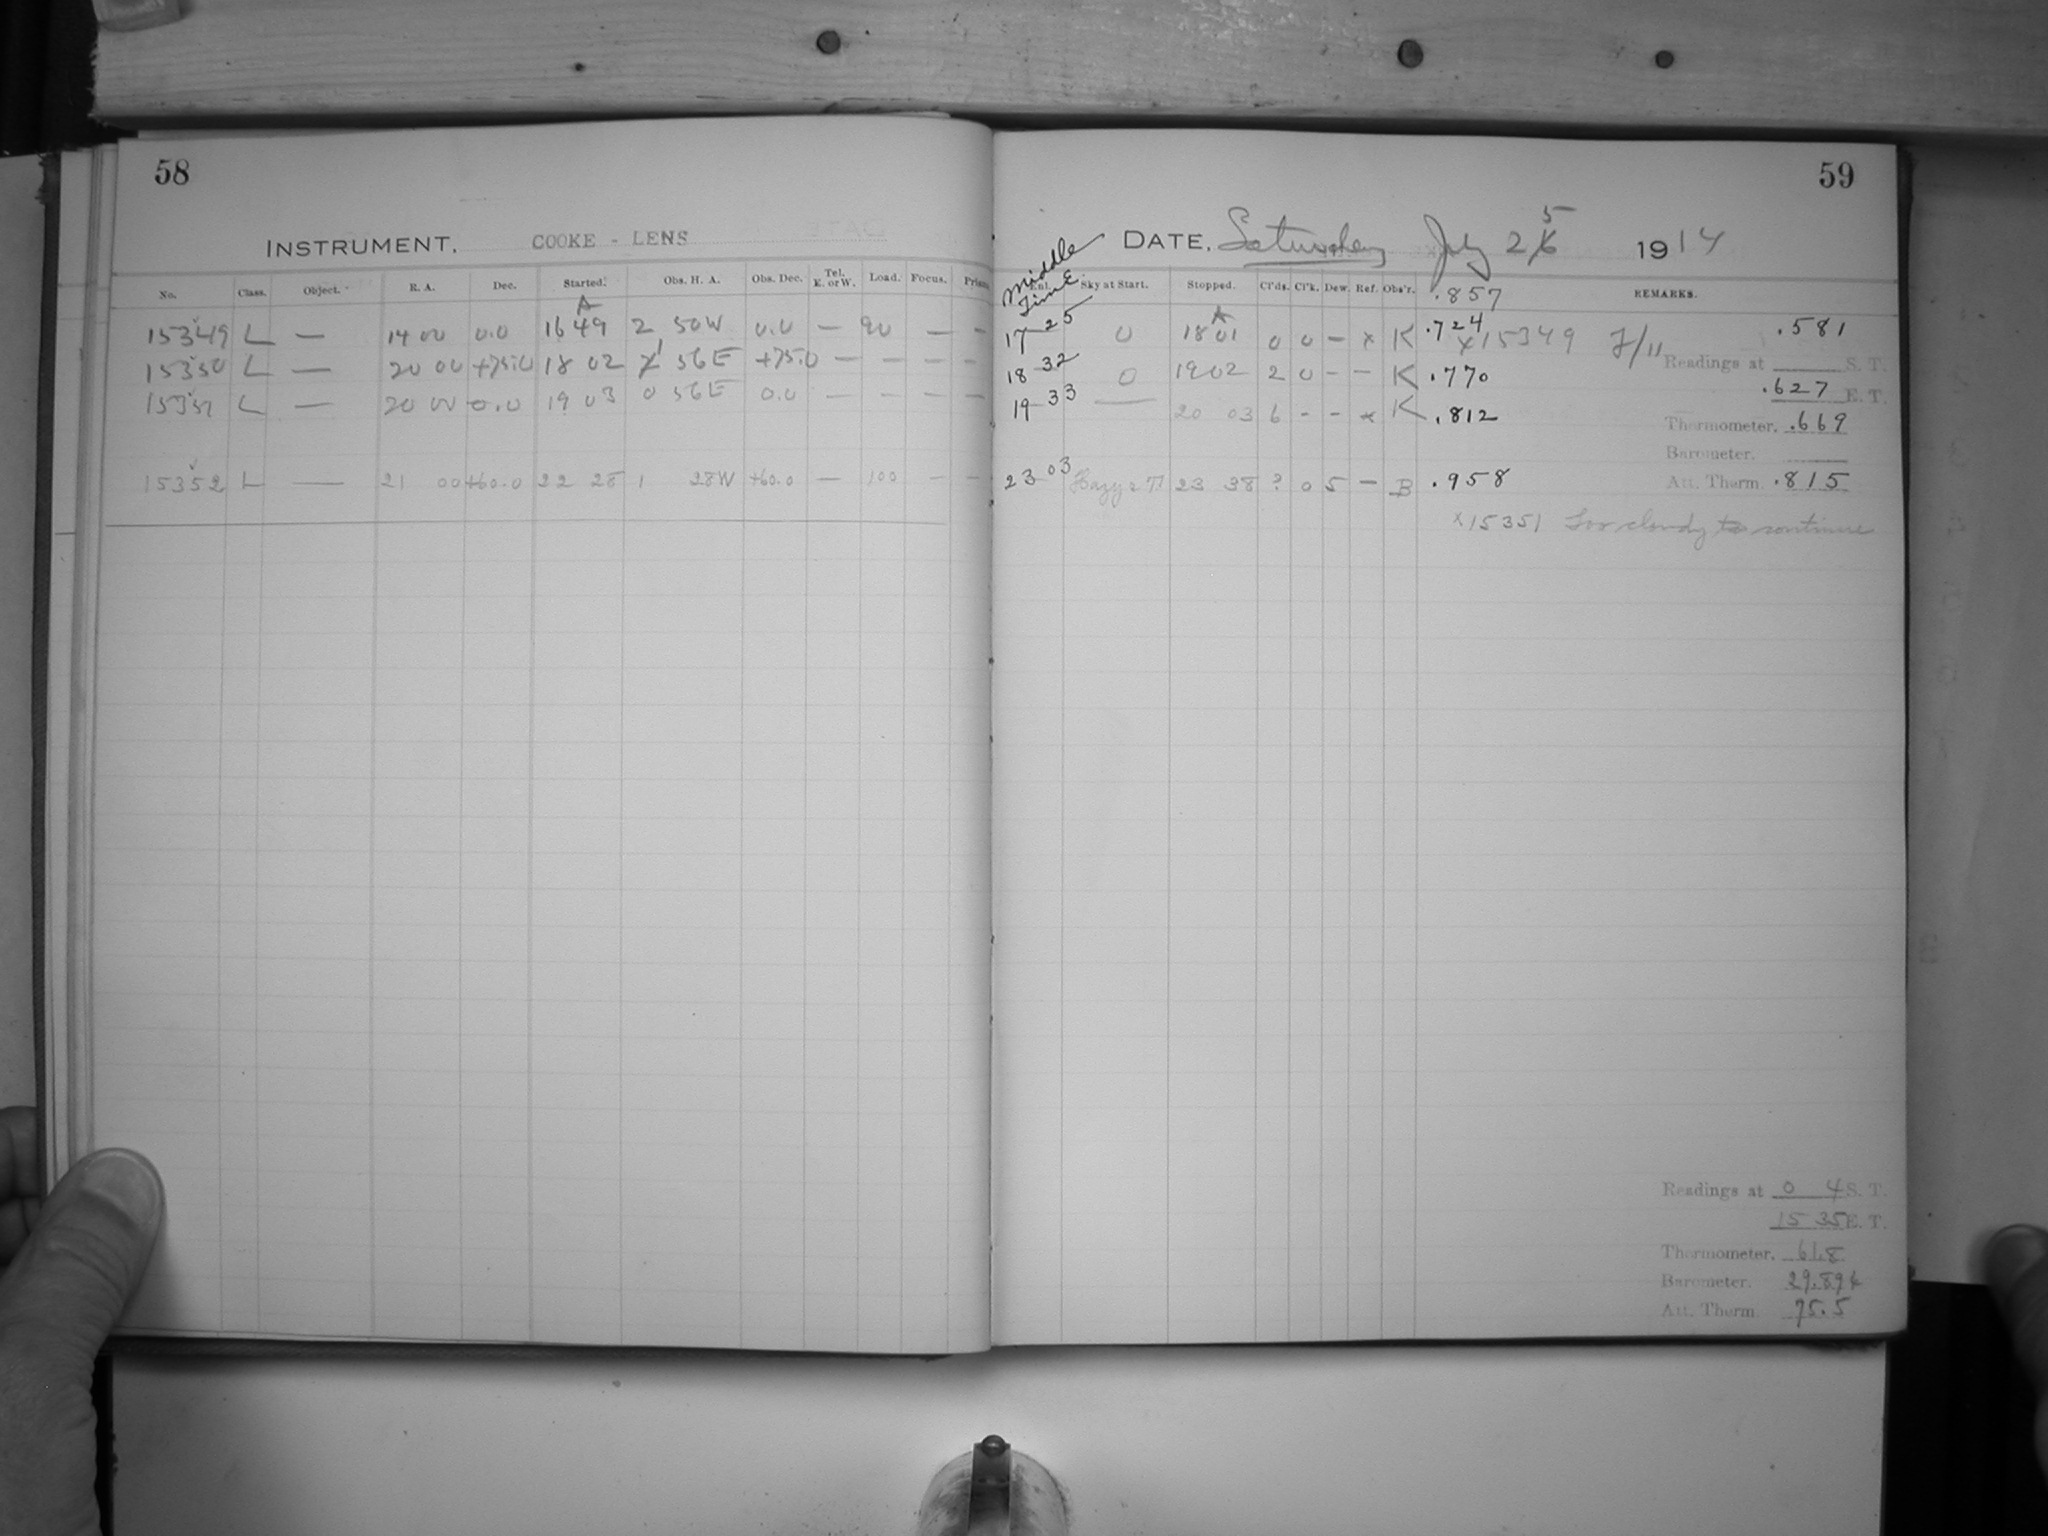 58
INSTRUMENT. COOKE - LENS
No. Class. Object. R. A. Dec. Started. Obs. H. A. Obs. Dec. Tel. E. or W. Load. Focus.
A
15349 L — 14 00 0.0 16 49 2 50W 0.0 — 90 — —
15350 L — 20 00 +75.0 18 02 1 56E +75.0 — — — —
15351 L — 20 00 0.0 19 03 0 56E 0.0 — — — —
15352 L — 21 00 +60.0 22 28 1 28W +60.0 — 100 — —
59
DATE. Saturday July 25 1914
Middle Time
Sky at Start. Stopped. Cl'ds. Cl'k. Dew. Ref. Obs'r. .857 REMARKS.
A
17 25 0 18 01 0 0 – x K .724 x15349 F/11 .581
Readings at S. T.
18 32 0 19 02 2 0 – – K .770
.627 E. T.
19 33 — 20 03 6 – – x K .812
Thermometer. .669
Barometer.
23 03 23 38 ? 0 5 – B .958
Att. Therm. .815
x15351 Too cloudy to continue
Readings at 0 4 S. T.
15 35 E. T.
Thermometer. 61.8
Barometer. 29.894
Att. Therm. 75.5